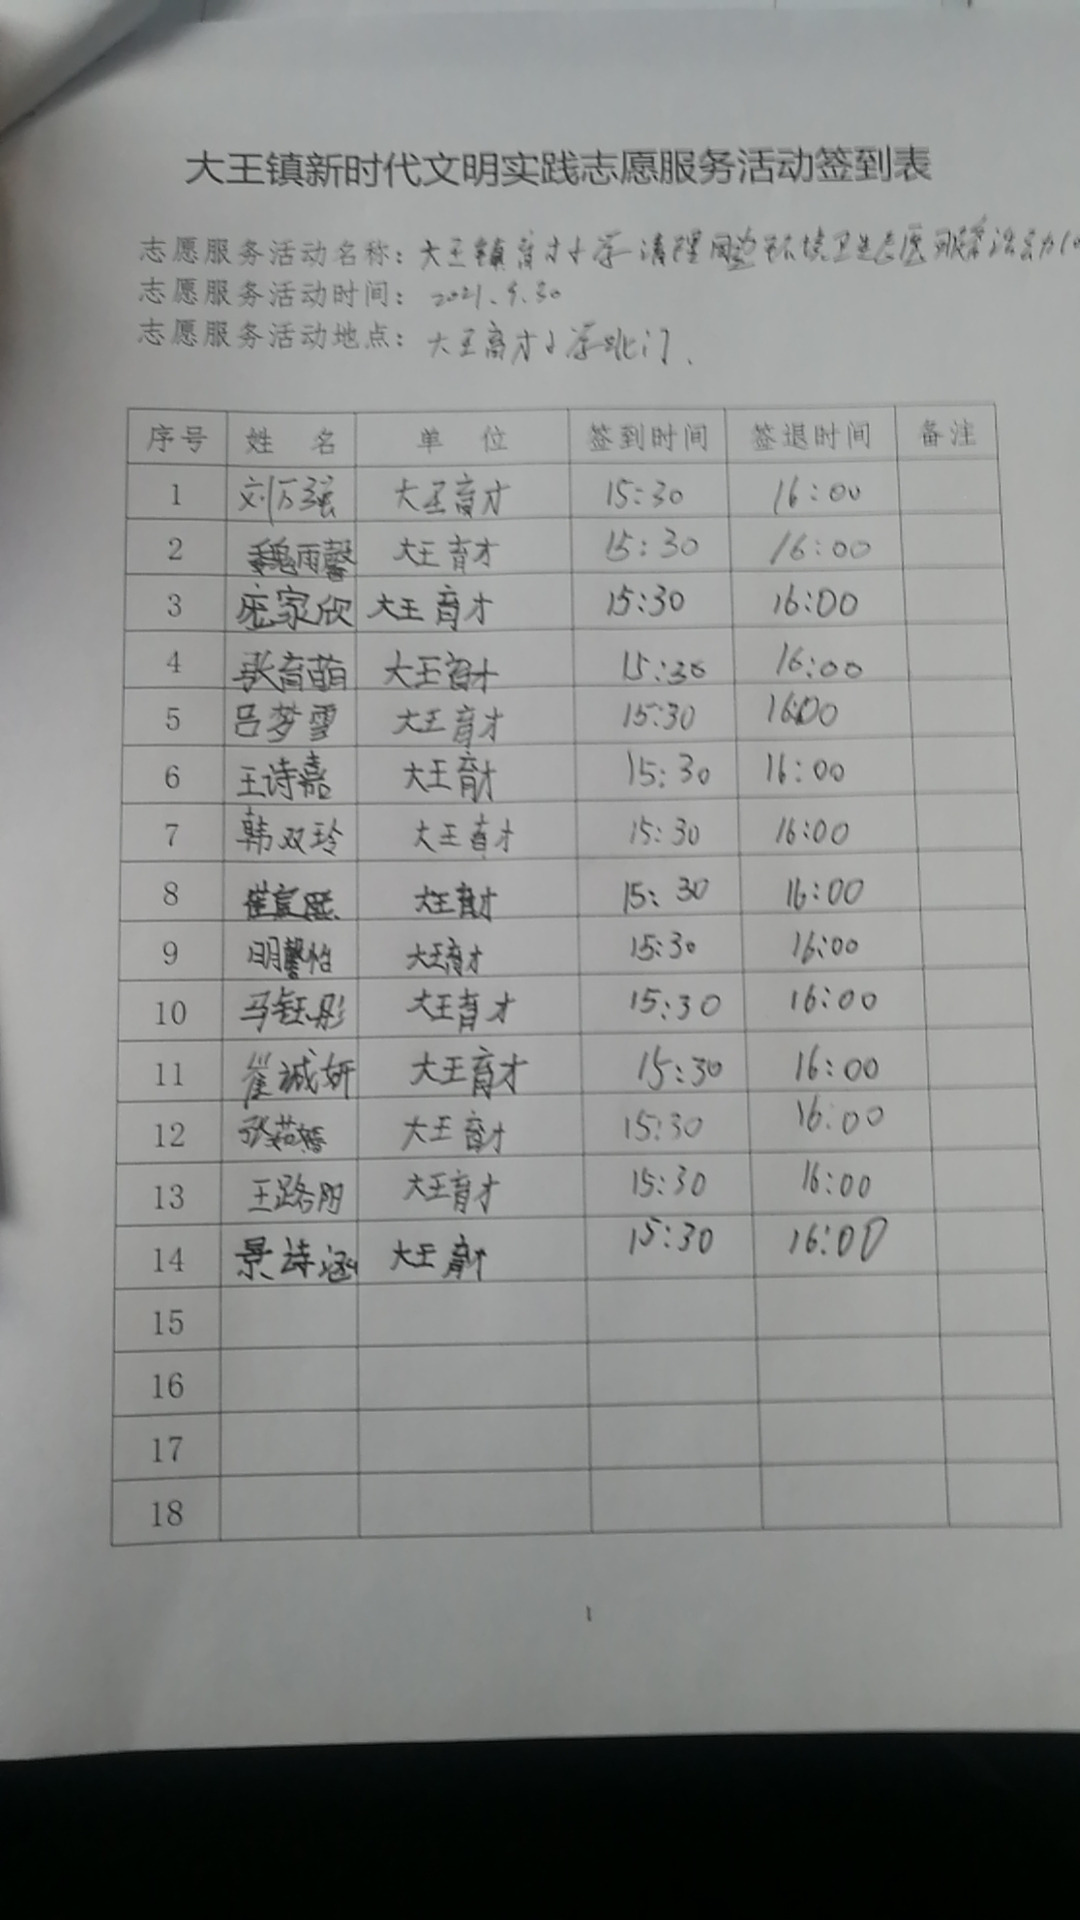 大王镇新时代文明实践志愿服务活动签到表
志愿服务活动名称：大王镇育才小学清理周边环境卫生志愿服务活动
志愿服务活动时间：2021.9.30
志愿服务活动地点：大王育才小学北门.
序号 姓名 单位 签到时间 签退时间 备注
1 刘万强 大王育才 15:30 16:00
2 魏雨馨 大王育才 15:30 16:00
3 庞家欣 大王育才 15:30 16:00
4 张育萌 大王育才 15:30 16:00
5 吕梦雪 大王育才 15:30 16:00
6 王诗嘉 大王育才 15:30 16:00
7 韩双玲 大王育才 15:30 16:00
8 大王育才 15:30 16:00
9 明馨怡 大王育才 15:30 16:00
10 马钰彤 大王育才 15:30 16:00
11 崔诚妍 大王育才 15:30 16:00
12 大王育才 15:30 16:00
13 王路阳 大王育才 15:30 16:00
14 景诗涵 大王育才 15:30 16:00
15
16
17
18
1